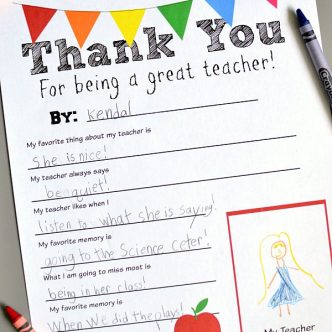 Thank You
For being a great teacher!
By: Kendal
My favorite thing about my teacher is
She is nice!
My teacher always says
be quiet!
My teacher likes when I
listen to what she is saying!
My favorite memory is
going to the Science Ceter!
What I am going to miss most is
being in her class!
My favorite memory is
When We did the plays!
My Teacher